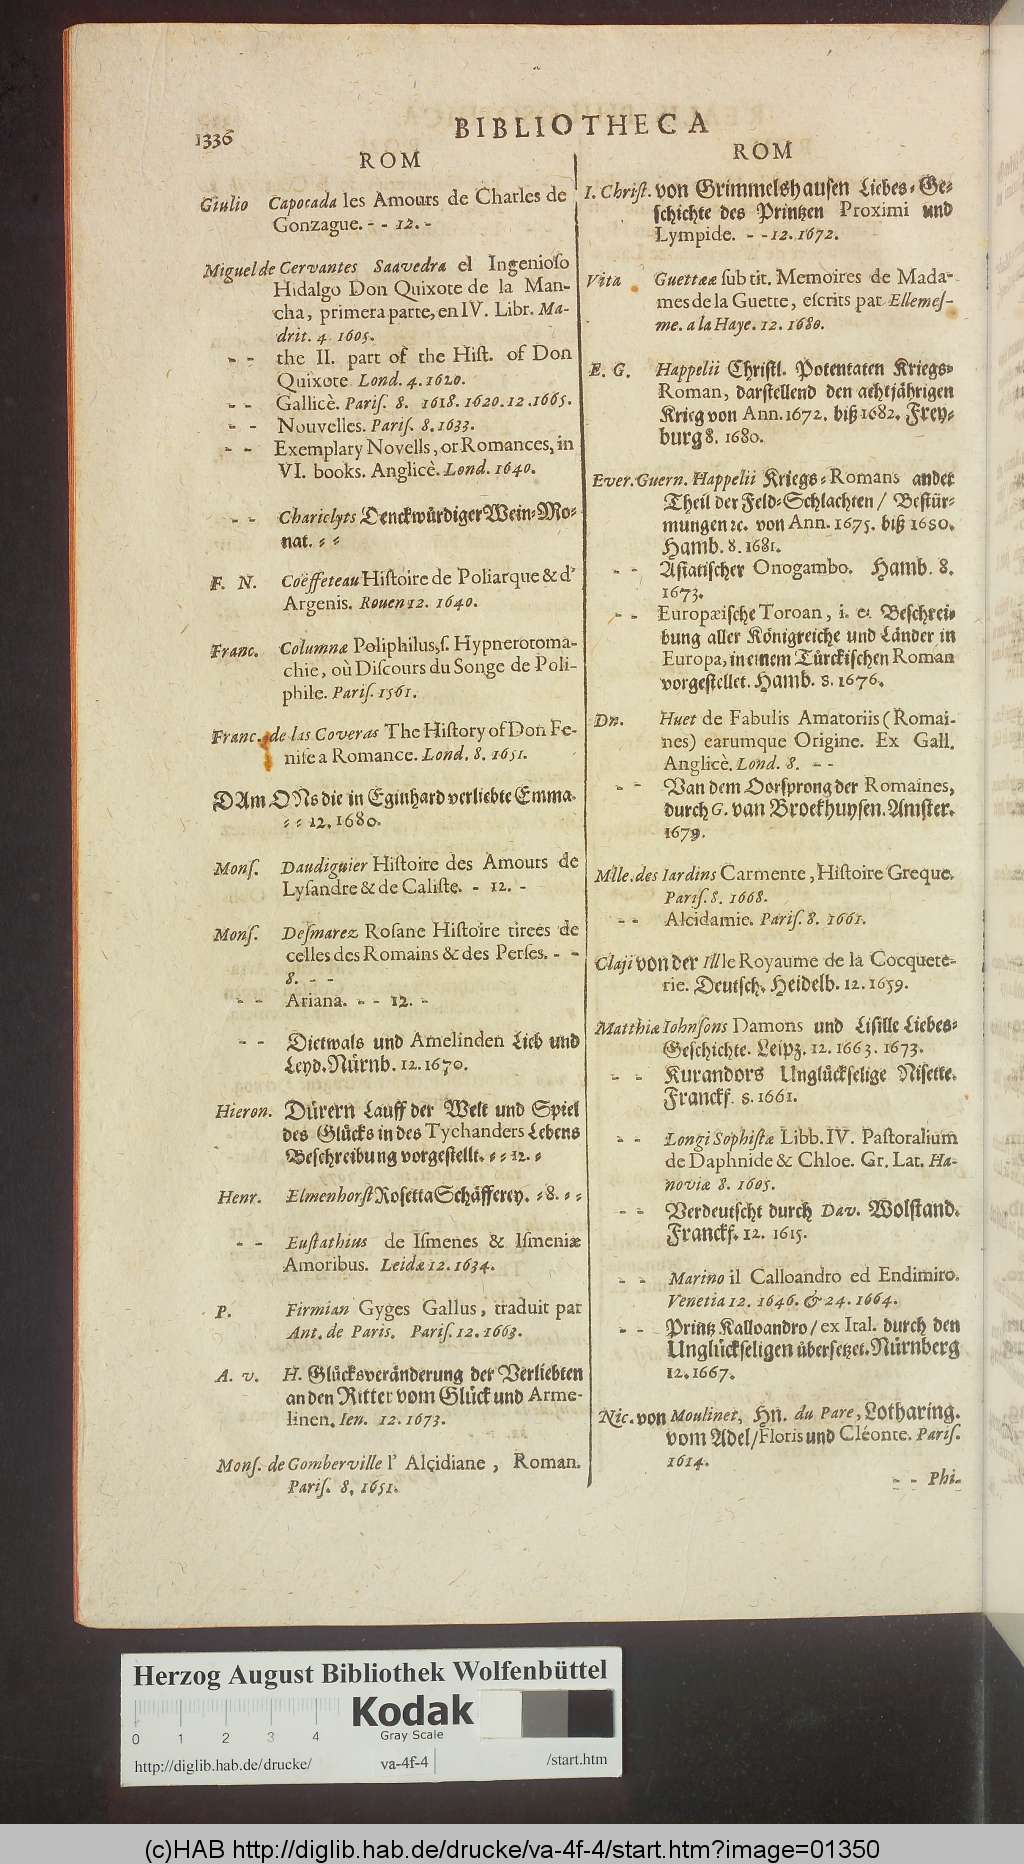 1336
BIBLIOTHECA
ROM
Giulio Capocada les Amours de Charles de
Gonzague. - - 12. -
Miguel de Cervantes Saavedra el Ingenioso
Hidalgo Don Quixote de la Man-
cha, primera parte, en IV. Libr. Ma-
drit. 4 1605.
- - the II. part of the Hist. of Don
Quixote Lond. 4. 1620.
- - Gallicè. Paris. 8. 1618. 1620. 12. 1665.
- - Nouvelles. Paris. 8. 1633.
- - Exemplary Novells, or Romances, in
VI. books. Anglicè. Lond. 1640.
- - Chariclyts Denckwürdiger Wein-Mo-
nat. - -
F. N. Coëffeteau Histoire de Poliarque & d'
Argenis. Rouen 12. 1640.
Franc. Columnæ Poliphilus, s. Hypnerotoma-
chie, où Discours du Songe de Poli-
phile. Paris. 1561.
Franc. de las Coveras The History of Don Fe-
nise a Romance. Lond. 8. 1651.
DAmONs die in Eginhard verliebte Emma.
- - 12. 1680.
Mons. Daudiguier Histoire des Amours de
Lysandre & de Caliste. - 12. -
Mons. Desmarez Rosane Histoire tirees de
celles des Romains & des Perses. - -
8. - -
- - Ariana. - - 12. -
- - Dietwals und Amelinden Lieb und
Leyd. Nürnb. 12. 1670.
Hieron. Dürern Lauff der Welt und Spiel
des Glücks in des Tychanders Lebens
Beschreibung vorgestellt. - - 12. -
Henr. Elmenhorst Rosetta Schäfferey. - 8. - -
- - Eustathius de Ismenes & Ismeniæ
Amoribus. Leidæ 12. 1634.
P. Firmian Gyges Gallus, traduit par
Ant. de Paris. Paris. 12. 1663.
A. v. H. Glücksveränderung der Verliebten
an den Ritter vom Glück und Arme-
linen. Ien. 12. 1673.
Mons. de Gomberville l' Alcidiane, Roman.
Paris. 8. 1651.
ROM
I. Christ. von Grimmelshausen Liebes-Ge-
schichte des Printzen Proximi und
Lympide. - - 12. 1672.
Vita Guettææ sub tit. Memoires de Mada-
mes de la Guette, escrits par Ellemes-
me. a la Haye. 12. 1680.
E. G. Happelii Christl. Potentaten Kriegs-
Roman, darstellend den achtjährigen
Krieg von Ann. 1672. biß 1682. Frey-
burg 8. 1680.
Ever. Guern. Happelii Kriegs-Romans ander
Theil der Feld-Schlachten / Bestür-
mungen ꝛc. von Ann. 1675. biß 1680.
Hamb. 8. 1681.
- - Asiatischer Onogambo. Hamb. 8.
1673.
- - Europæische Toroan, i. e. Beschrei-
bung aller Königreiche und Länder in
Europa, in einem Türckischen Roman
vorgestellet. Hamb. 8. 1676.
Dn. Huet de Fabulis Amatoriis (Romai-
nes) earumque Origine. Ex Gall.
Anglicè. Lond. 8. - -
- - Van dem Oorsprong der Romaines,
durch G. van Broekhuysen. Amster.
1679.
Mlle. des Iardins Carmente, Histoire Greque.
Paris. 8. 1668.
- - Alcidamie. Paris. 8. 1661.
Claji von der Ill le Royaume de la Cocquete-
rie. Deutsch. Heidelb. 12. 1659.
Matthiæ Iohnsons Damons und Lisille Liebes-
Geschichte. Leipz. 12. 1663. 1673.
- - Kurandors Unglückselige Nisette.
Franckf. 8. 1661.
- - Longi Sophistæ Libb. IV. Pastoralium
de Daphnide & Chloe. Gr. Lat. Ha-
noviæ 8. 1605.
- - Verdeutscht durch Dav. Wolstand.
Franckf. 12. 1615.
- - Marino il Calloandro ed Endimiro.
Venetia 12. 1646. & 24. 1664.
- - Printz Kalloandro / ex Ital. durch den
Unglückseligen übersetzet. Nürnberg
12. 1667.
Nic. von Moulinet, Hn. du Pare, Lotharing.
vom Adel / Floris und Cléonte. Paris.
1614.
- - Phi-
Herzog August Bibliothek Wolfenbüttel
Kodak
Gray Scale
0 1 2 3 4
http://diglib.hab.de/drucke/ va-4f-4 /start.htm
(c)HAB http://diglib.hab.de/drucke/va-4f-4/start.htm?image=01350